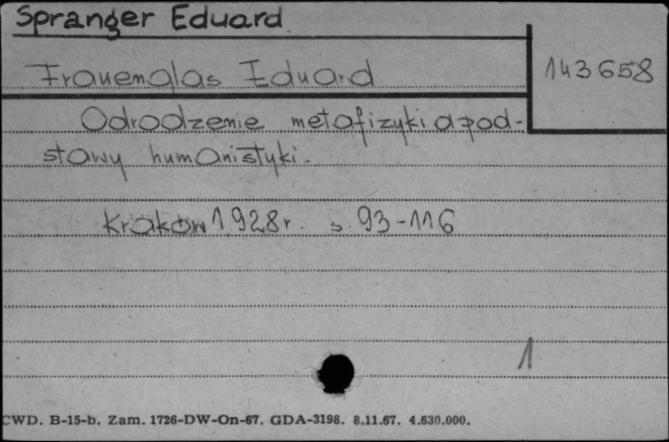 Spranger Eduard
Frauenglas Eduard
143658
Odrodzenie metafizyki a pod-
stawy humanistyki.
Kraków 1928 r. s. 93-116
1
CWD. B-15-b. Zam. 1726-DW-On-67. GDA-3198. 8.11.67. 4.630.000.